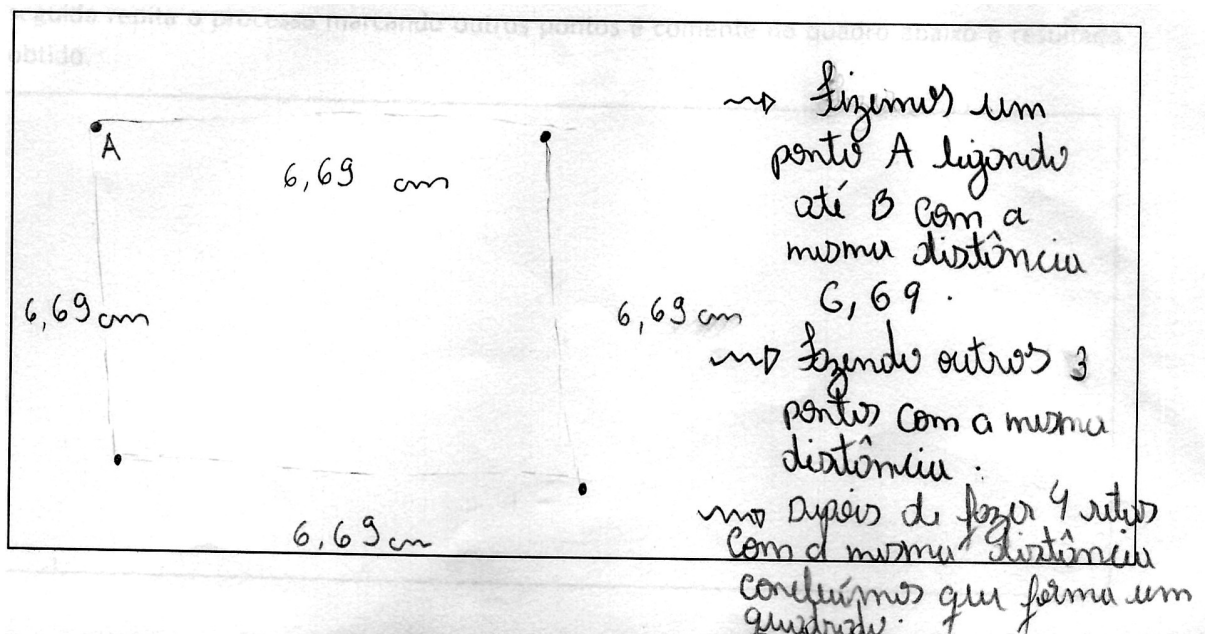 seguida repita o processo marcando outros pontos e comente na quadro abaixo o resultado
obtido.
A
6,69 cm
6,69 cm
6,69 cm
6,69 cm
~> fizemos um
ponto A ligando
até B com a
mesma distância
6,69.
~> fazendo outros 3
pontos com a mesma
distância.
~> Depois de fazer 4 retas
com a mesma distância
concluímos que forma um
quadrado.